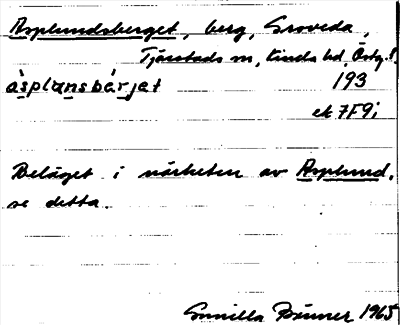 Asplundsberget, berg, Groveda,
Tjärstads sn, Kinda hd, Östg. l.
àsplansbárjat 193
ek 7F9i
Beläget i närheten av Asplund,
se detta.
Gunilla Bränner 1965